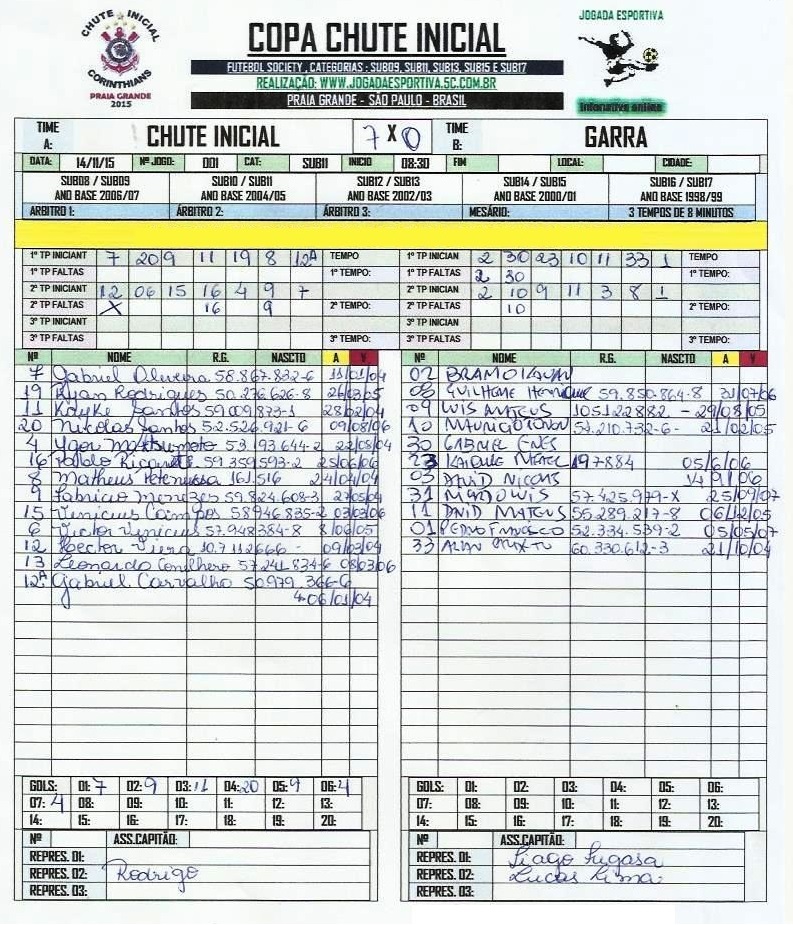 CHUTE INICIAL
CORINTHIANS
PRAIA GRANDE
2015
COPA CHUTE INICIAL
FUTEBOL SOCIETY , CATEGORIAS : SUB09, SUB11, SUB13, SUB15 E SUB17
REALIZAÇÃO: WWW.JOGADAESPORTIVA.5C.COM.BR
PRAIA GRANDE - SÃO PAULO - BRASIL
JOGADA ESPORTIVA
interativa online
TIME A: CHUTE INICIAL 7 X 0 TIME B: GARRA
DATA: 14/11/15 Nº JOGO: 001 CAT: SUB11 INICIO 08:30 FIM LOCAL: CIDADE:
SUB08 / SUB09 SUB10 / SUB11 SUB12 / SUB13 SUB14 / SUB15 SUB16 / SUB17
ANO BASE 2006/07 ANO BASE 2004/05 ANO BASE 2002/03 ANO BASE 2000/01 ANO BASE 1998/99
ÁRBITRO 1: ÁRBITRO 2: ÁRBITRO 3: MESÁRIO: 3 TEMPOS DE 8 MINUTOS
1º TP INICIANT 7 20 9 11 19 8 12A TEMPO 1º TP INICIAN 2 30 23 10 11 33 1 TEMPO
1º TP FALTAS 1º TEMPO: 1º TP FALTAS 2 30 1º TEMPO:
2º TP INICIANT 12 06 15 16 4 9 7 2º TP INICIAN 2 10 9 11 3 8 1
2º TP FALTAS X 16 9 2º TEMPO: 2º TP FALTAS 10 2º TEMPO:
3º TP INICIANT 3º TP INICIAN
3º TP FALTAS 3º TEMPO: 3º TP FALTAS 3º TEMPO:
Nº NOME R.G. NASCTO A V
7 Gabriel Oliveira 58.867.832-6 11/01/04
19 Ryan Rodrigues 50.276.626-8 26/03/05
11 Kayke Santos 59.009.873-1 28/02/04
20 Nikolas Santos 52.526.921-6 09/08/06
4 Ygor Matsumoto 53.193.644-2 22/05/04
16 Pablo 59.359.593-2 25/06/06
8 Matheus 161.516 24/04/04
9 Fabricio Menezes 59.824.608-3 27/05/04
15 Vinicius Campos 58946835-2 03/03/06
6 Victor Vinicius 57.948384-8 8/06/05
12 Hector Viera 10.7112666 - 09/03/04
13 Leonardo 57.241.834-6 08/03/06
12A Gabriel Carvalho 50.979.366-6
06/01/04
Nº NOME R.G. NASCTO A V
02
08 GUILHEME HENRIQUE 59.850.864-8 31/07/06
09 LUIS MATEUS 105122882 - 29/08/05
10 57.210.732-6 - 21/02/05
30 GABRIEL ENES
23 197884 05/6/06
03 DAVID NICOLAS 14 9/06
31 57.425.979-X 25/09/07
11 DAVID MATEUS 55.289.217-8 06/12/05
01 PEDRO 52.334.539-2 05/05/07
33 ALAN 60.330.612-3 21/10/04
GOLS: 01: 7 02: 9 03: 11 04: 20 05: 9 06: 4
07: 4 08: 09: 10: 11: 12: 13:
14: 15: 16: 17: 18: 19: 20:
Nº ASS.CAPITÃO:
REPRES. 01:
REPRES. 02: Rodrigo
REPRES. 03:
GOLS: 01: 02: 03: 04: 05: 06:
07: 08: 09: 10: 11: 12: 13:
14: 15: 16: 17: 18: 19: 20:
Nº ASS.CAPITÃO:
REPRES. 01: Tiago
REPRES. 02: Lucas Lima
REPRES. 03: